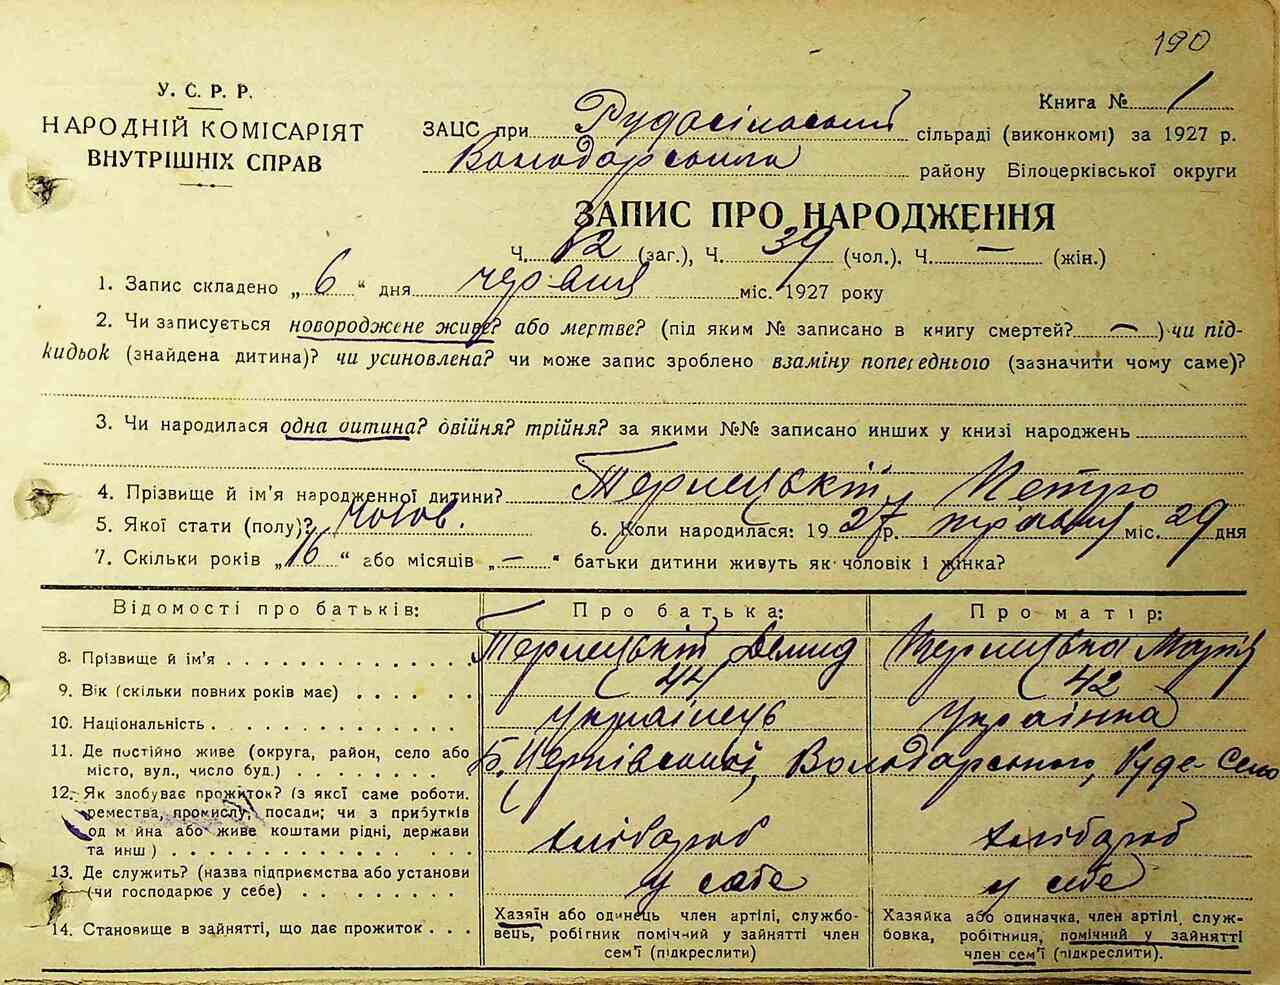 190
У. С. Р. Р.
НАРОДНІЙ КОМІСАРІЯТ
ВНУТРІШНІХ СПРАВ
Книга № 1
ЗАЦС при Рудосільский сільраді (виконкомі) за 1927 р.
Володарського району Білоцерківської округи
ЗАПИС ПРО НАРОДЖЕННЯ
Ч. 82 (заг.), Ч. 39 (чол.), Ч. — (жін.)
1. Запис складено „6“ дня червня міс. 1927 року
2. Чи записується новороджене живе? або мертве? (під яким № записано в книгу смертей? — ) чи під-
кидьок (знайдена дитина)? чи усиновлена? чи може запис зроблено взаміну попереднього (зазначити чому саме)?
3. Чи народилася одна дитина? двійня? трійня? за якими №№ записано инших у книзі народжень
4. Прізвище й ім'я народженної дитини? Терлецькій Петро
5. Якої стати (полу)? Чолов. 6. Коли народилася: 1927 р. травня міс. 29 дня
7. Скільки років „16“ або місяців „—“ батьки дитини живуть як чоловік і жінка?
Відомості про батьків: Про батька: Про матір:
8. Прізвище й ім'я Терлецькій Демид Терлецька Марія
9. Вік (скільки повних років має) 44 42
10. Національність українець Українка
11. Де постійно живе (округа, район, село або місто, вул., число буд.) Б. Церківської, Володарського, Руде Село
12. Як здобуває прожиток? (з якої саме роботи,
ремества, промислу, посади; чи з прибутків
од майна або живе коштами рідні, держави
та инш) хлібароб хлібароб
13. Де служить? (назва підприємства або установи
(чи господарює у себе) у себе у себе
14. Становище в зайнятті, що дає прожиток
Хазяїн або одинець член артілі, службо-
вець, робітник помічний у зайнятті член
сем'ї (підкреслити)
Хазяйка або одиначка, член артілі, служ-
бовка, робітниця, помічний у зайнятті
член сем'ї (підкреслити).